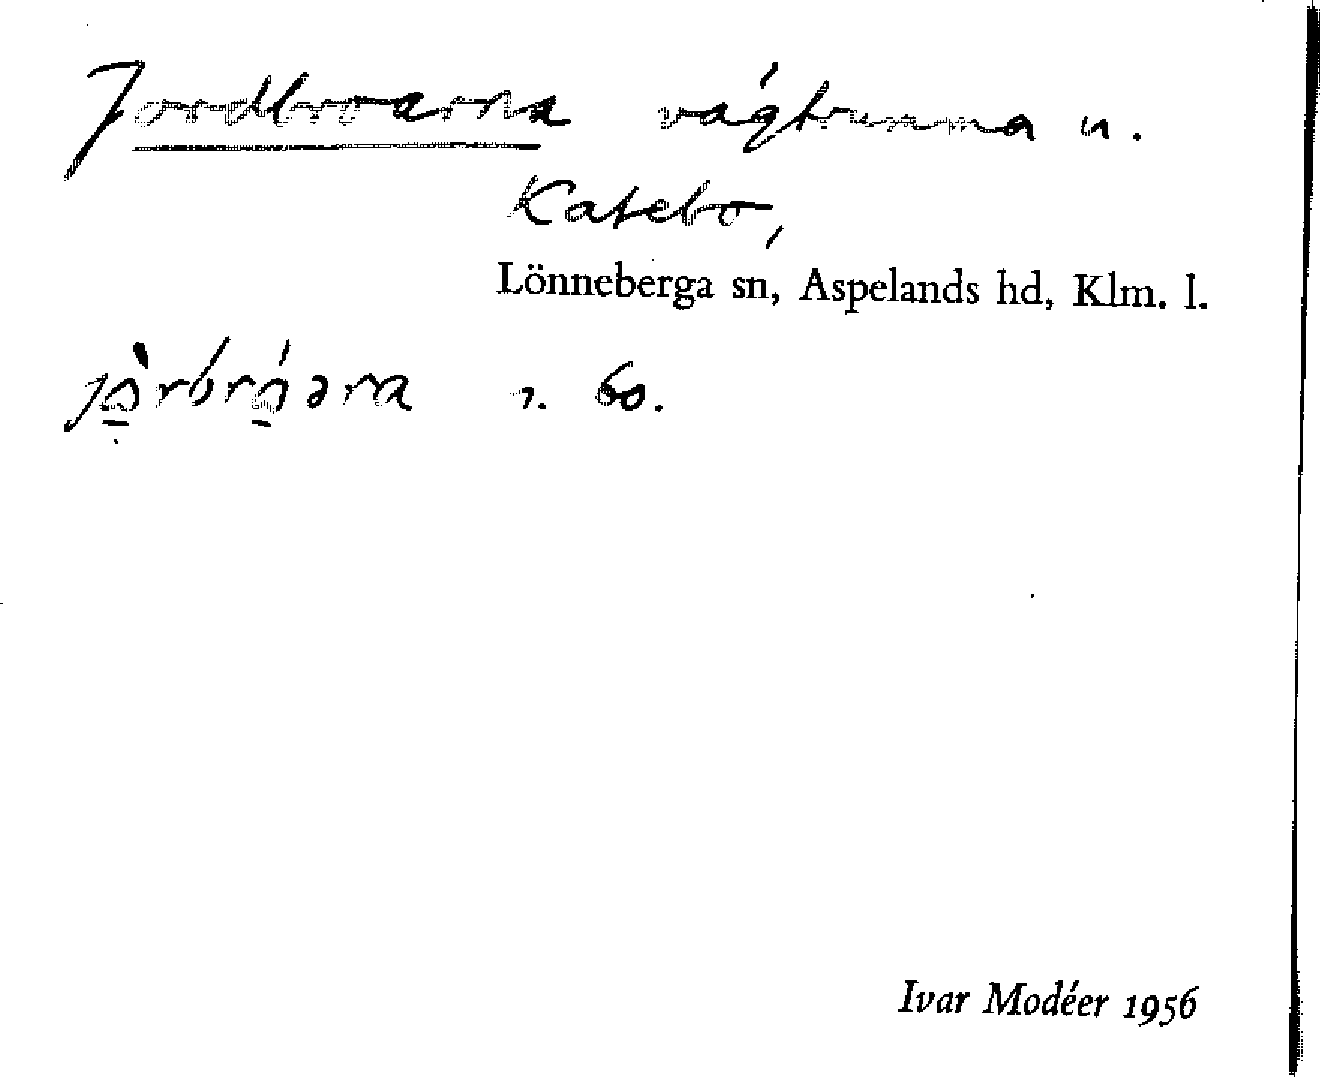 Jordbroarna vägtrumma n.
Katebo,
Lönneberga sn, Aspelands hd, Klm. l.
60.
Ivar Modéer 1956